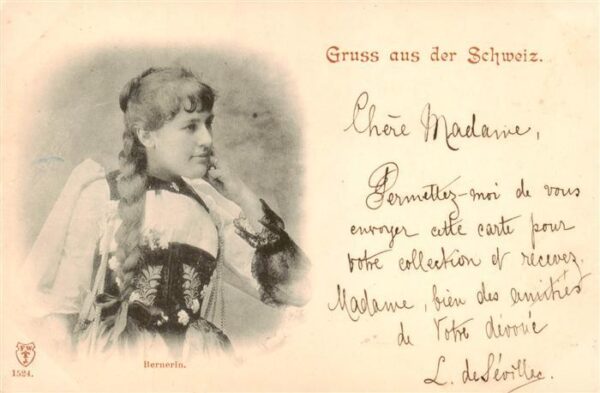 Gruss aus der Schweiz.
Chère Madame,
Permettez-moi de vous
envoyer cette carte pour
votre collection et recevez,
Madame, bien des amitiés
de Votre dévoué
L. de Sévillac.
Bernerin.
1524.